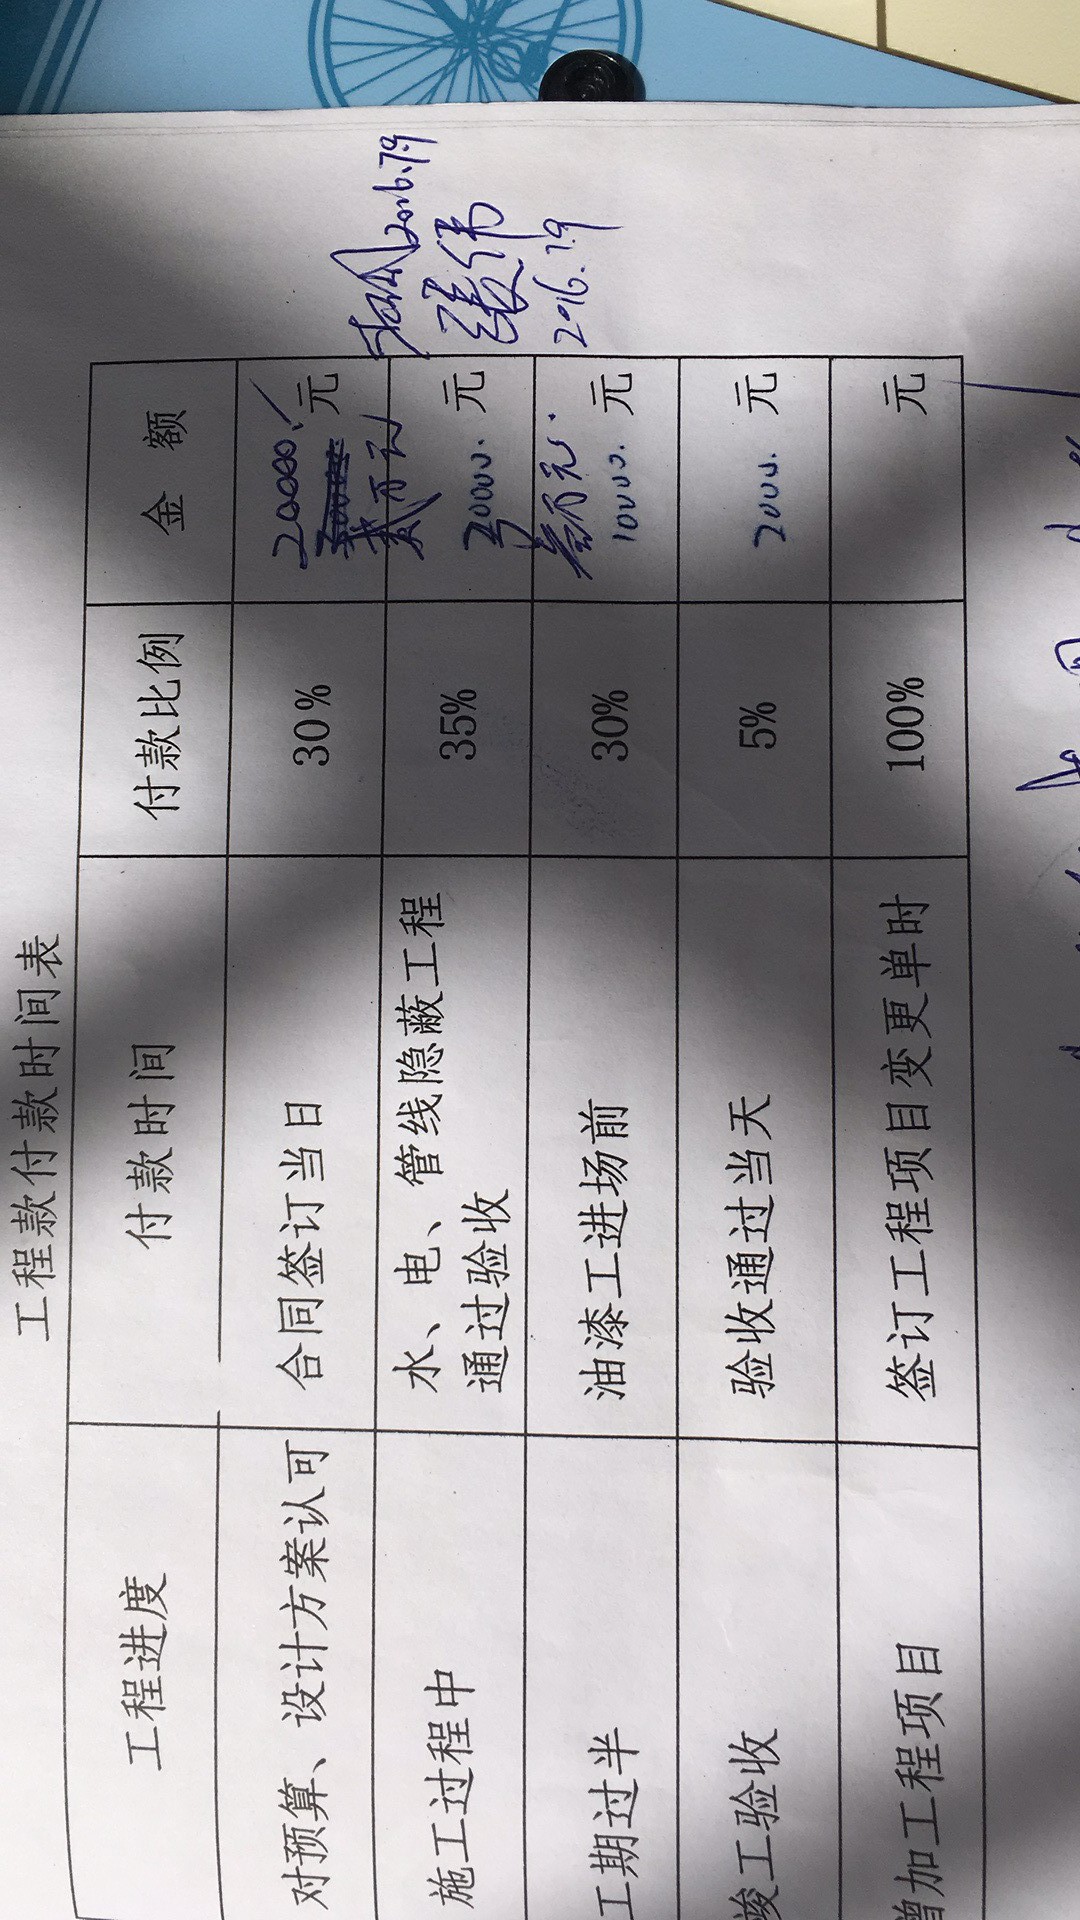 工程款付款时间表
工程进度 付款时间 付款比例 金 额
对预算、设计方案认可 合同签订当日 30% 20000. 元
贰万元
施工过程中 水、电、管线隐蔽工程 35% 20000. 元
通过验收
工期过半 油漆工进场前 30% 叁万元.
10000. 元
竣工验收 验收通过当天 5% 2000. 元
增加工程项目 签订工程项目变更单时 100% 元
2016.7.9
张伟
2016.7.9